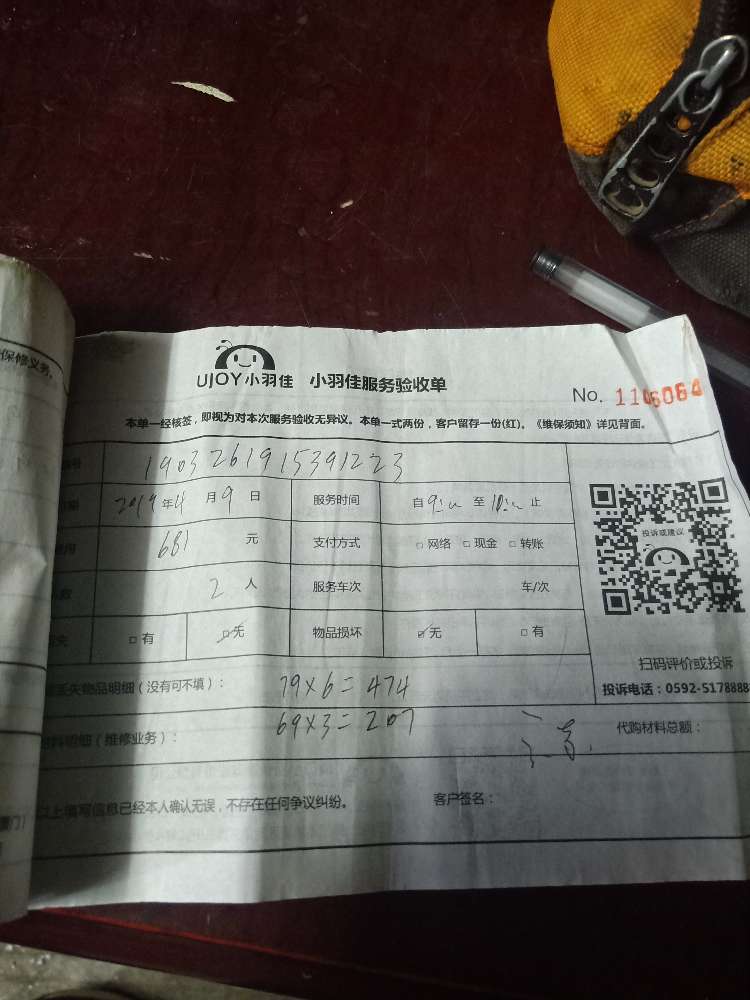 保修义务。
UJOY小羽佳 小羽佳服务验收单
No. 1106064
本单一经核签，即视为对本次服务验收无异议。本单一式两份，客户留存一份(红)。《维保须知》详见背面。
号 1903261915391223
期 2019年4月9日 服务时间 自 9: 至 10: 止
681 元 支付方式 □网络 □现金 □转账
投诉或建议
数 2人 服务车次 车/次
失 □有 □无 物品损坏 □无 □有
扫码评价或投诉
丢失物品明细（没有可不填）： 79×6=474
投诉电话：0592-5178888
料明细（维修业务）： 69×3=207 代购材料总额：
以上填写信息已经本人确认无误，不存在任何争议纠纷。 客户签名：